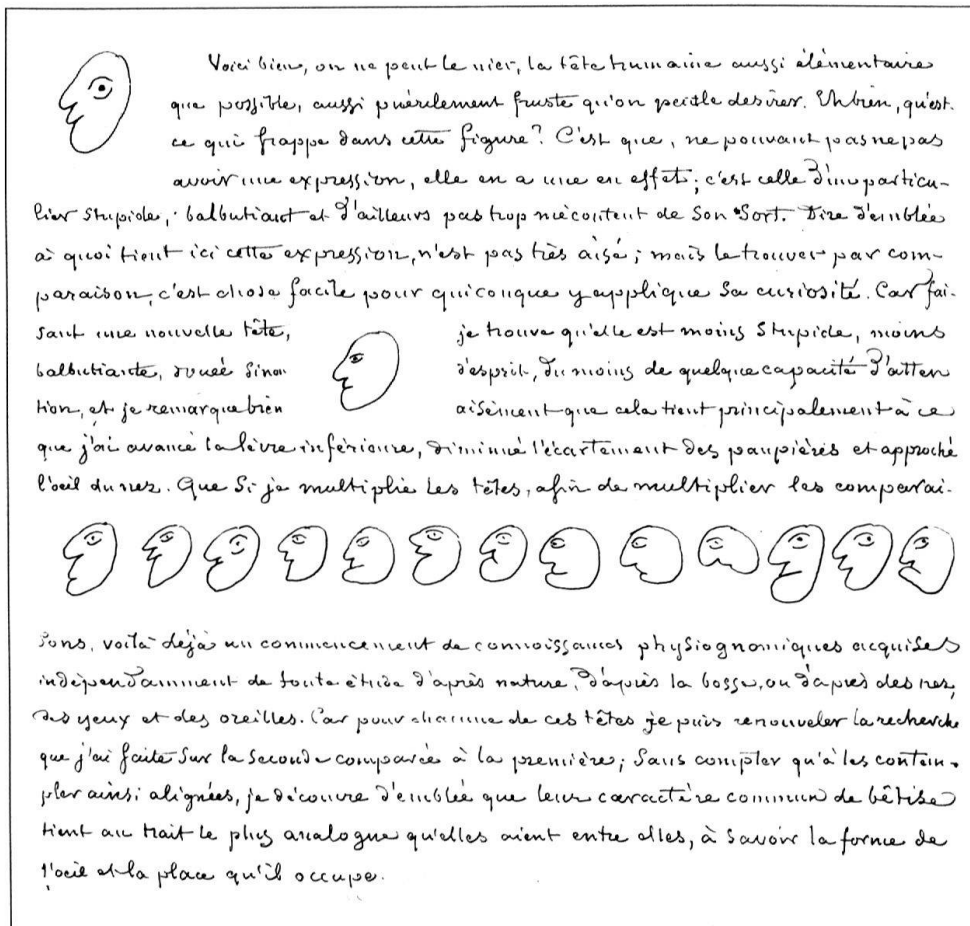 Voici bien, on ne peut le nier, la tête humaine aussi élémentaire
que possible, aussi puérilement fruste qu'on peut le desirer. Eh bien, qu'est-
ce qui frappe dans cette figure? C'est que, ne pouvant pas ne pas
avoir une expression, elle en a une en effet; c'est celle d'un particu-
lier stupide, balbutiant et d'ailleurs pas trop mécontent de son sort. Dire d'emblée
à quoi tient ici cette expression, n'est pas très aisé; mais le trouver par com-
paraison, c'est chose facile pour quiconque y applique sa curiosité. Car fai-
sant une nouvelle tête, je trouve qu'elle est moins stupide, moins
balbutiante, douée sinon d'esprit, du moins de quelque capacité d'atten
tion, et je remarque bien aisément que cela tient principalement à ce
que j'ai avancé la lèvre inférieure, diminué l'écartement des paupières et approché
l'oeil du nez. Que si je multiplie les têtes, afin de multiplier les comparai-
sons, voilà déjà un commencement de connoissances physiognomiques acquises
indépendamment de toute étude d'après nature, d'après la bosse, ou d'après des nez,
des yeux et des oreilles. Car pour chacune de ces têtes je puis renouveler la recherche
que j'ai faite sur la seconde comparée à la première; sans compter qu'à les contem-
pler ainsi alignées, je découvre d'emblée que leur caractère commun de bêtise
tient au trait le plus analogue qu'elles aient entre elles, à savoir la forme de
l'oeil et la place qu'il occupe.